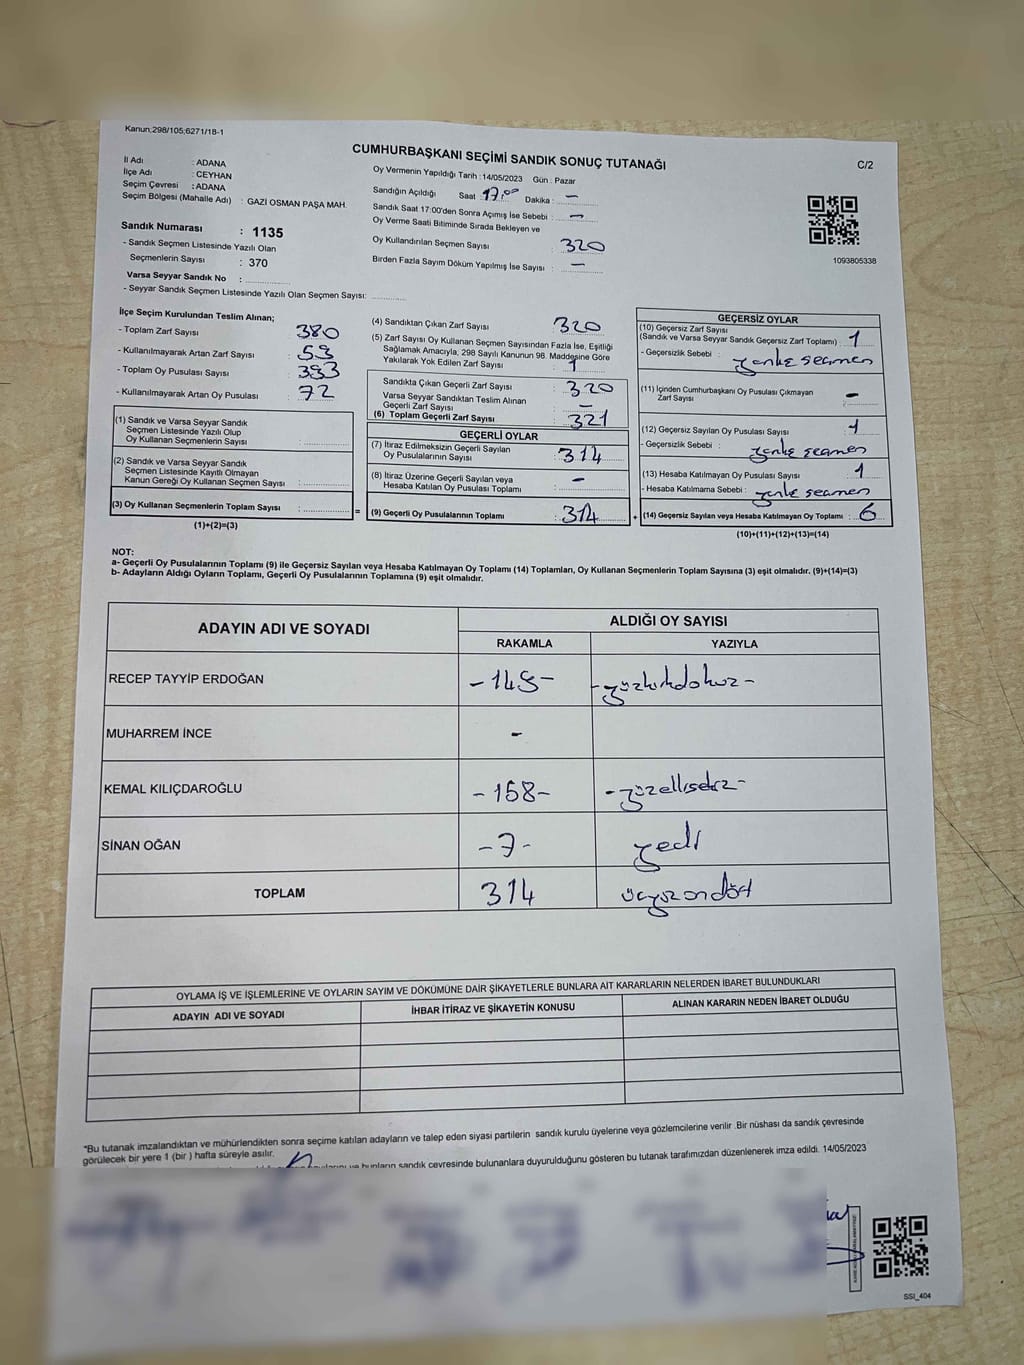 Kanun:298/105;6271/18-1
CUMHURBAŞKANI SEÇİMİ SANDIK SONUÇ TUTANAĞI
C/2
İl Adı : ADANA
İlçe Adı : CEYHAN
Seçim Çevresi : ADANA
Seçim Bölgesi (Mahalle Adı) : GAZİ OSMAN PAŞA MAH.
Sandık Numarası : 1135
- Sandık Seçmen Listesinde Yazılı Olan
Seçmenlerin Sayısı : 370
Varsa Seyyar Sandık No :
- Seyyar Sandık Seçmen Listesinde Yazılı Olan Seçmen Sayısı:
Oy Vermenin Yapıldığı Tarih : 14/05/2023 Gün : Pazar
Sandığın Açıldığı Saat 17.00 Dakika : -
Sandık Saat 17:00'den Sonra Açımış İse Sebebi : -
Oy Verme Saati Bitiminde Sırada Bekleyen ve
Oy Kullandırılan Seçmen Sayısı : 320
Birden Fazla Sayım Döküm Yapılmış İse Sayısı : -
1093805338
İlçe Seçim Kurulundan Teslim Alınan;
- Toplam Zarf Sayısı : 380
- Kullanılmayarak Artan Zarf Sayısı : 59
- Toplam Oy Pusulası Sayısı : 393
- Kullanılmayarak Artan Oy Pusulası : 72
(1) Sandık ve Varsa Seyyar Sandık
Seçmen Listesinde Yazılı Olup
Oy Kullanan Seçmenlerin Sayısı :
(2) Sandık ve Varsa Seyyar Sandık
Seçmen Listesinde Kayıtlı Olmayan
Kanun Gereği Oy Kullanan Seçmen Sayısı :
(3) Oy Kullanan Seçmenlerin Toplam Sayısı : =
(1)+(2)=(3)
(4) Sandıktan Çıkan Zarf Sayısı : 320
(5) Zarf Sayısı Oy Kullanan Seçmen Sayısından Fazla İse, Eşitliği
Sağlamak Amacıyla, 298 Sayılı Kanunun 98. Maddesine Göre
Yakılarak Yok Edilen Zarf Sayısı : 1
Sandıkta Çıkan Geçerli Zarf Sayısı : 320
Varsa Seyyar Sandıktan Teslim Alınan
Geçerli Zarf Sayısı : -
(6) Toplam Geçerli Zarf Sayısı : 321
GEÇERLİ OYLAR
(7) İtiraz Edilmeksizin Geçerli Sayılan
Oy Pusulalarının Sayısı : 314
(8) İtiraz Üzerine Geçerli Sayılan veya
Hesaba Katılan Oy Pusulası Toplamı : -
(9) Geçerli Oy Pusulalarının Toplamı : 314 +
GEÇERSİZ OYLAR
(10) Geçersiz Zarf Sayısı
(Sandık ve Varsa Seyyar Sandık Geçersiz Zarf Toplamı) : 1
- Geçersizlik Sebebi :
(11) İçinden Cumhurbaşkanı Oy Pusulası Çıkmayan
Zarf Sayısı : -
(12) Geçersiz Sayılan Oy Pusulası Sayısı : 1
- Geçersizlik Sebebi :
(13) Hesaba Katılmayan Oy Pusulası Sayısı : 1
- Hesaba Katılmama Sebebi :
(14) Geçersiz Sayılan veya Hesaba Katılmayan Oy Toplamı : 6
(10)+(11)+(12)+(13)=(14)
NOT:
a- Geçerli Oy Pusulalarının Toplamı (9) ile Geçersiz Sayılan veya Hesaba Katılmayan Oy Toplamı (14) Toplamları, Oy Kullanan Seçmenlerin Toplam Sayısına (3) eşit olmalıdır. (9)+(14)=(3)
b- Adayların Aldığı Oyların Toplamı, Geçerli Oy Pusulalarının Toplamına (9) eşit olmalıdır.
ADAYIN ADI VE SOYADI
ALDIĞI OY SAYISI
RAKAMLA YAZIYLA
RECEP TAYYİP ERDOĞAN -149- -yüzkırkdokuz-
MUHARREM İNCE -
KEMAL KILIÇDAROĞLU -158- -yüzellisekiz-
SİNAN OĞAN -7- yedi
TOPLAM 314 üçyüzondört
OYLAMA İŞ VE İŞLEMLERİNE VE OYLARIN SAYIM VE DÖKÜMÜNE DAİR ŞİKAYETLERLE BUNLARA AİT KARARLARIN NELERDEN İBARET BULUNDUKLARI
ADAYIN ADI VE SOYADI İHBAR İTİRAZ VE ŞİKAYETİN KONUSU ALINAN KARARIN NEDEN İBARET OLDUĞU
*Bu tutanak imzalandıktan ve mühürlendikten sonra seçime katılan adayların ve talep eden siyasi partilerin sandık kurulu üyelerine veya gözlemcilerine verilir .Bir nüshası da sandık çevresinde
görülecek bir yere 1 (bir ) hafta süreyle asılır.
ve bunların sandık çevresinde bulunanlara duyurulduğunu gösteren bu tutanak tarafımızdan düzenlenerek imza edildi. 14/05/2023
SSI_404